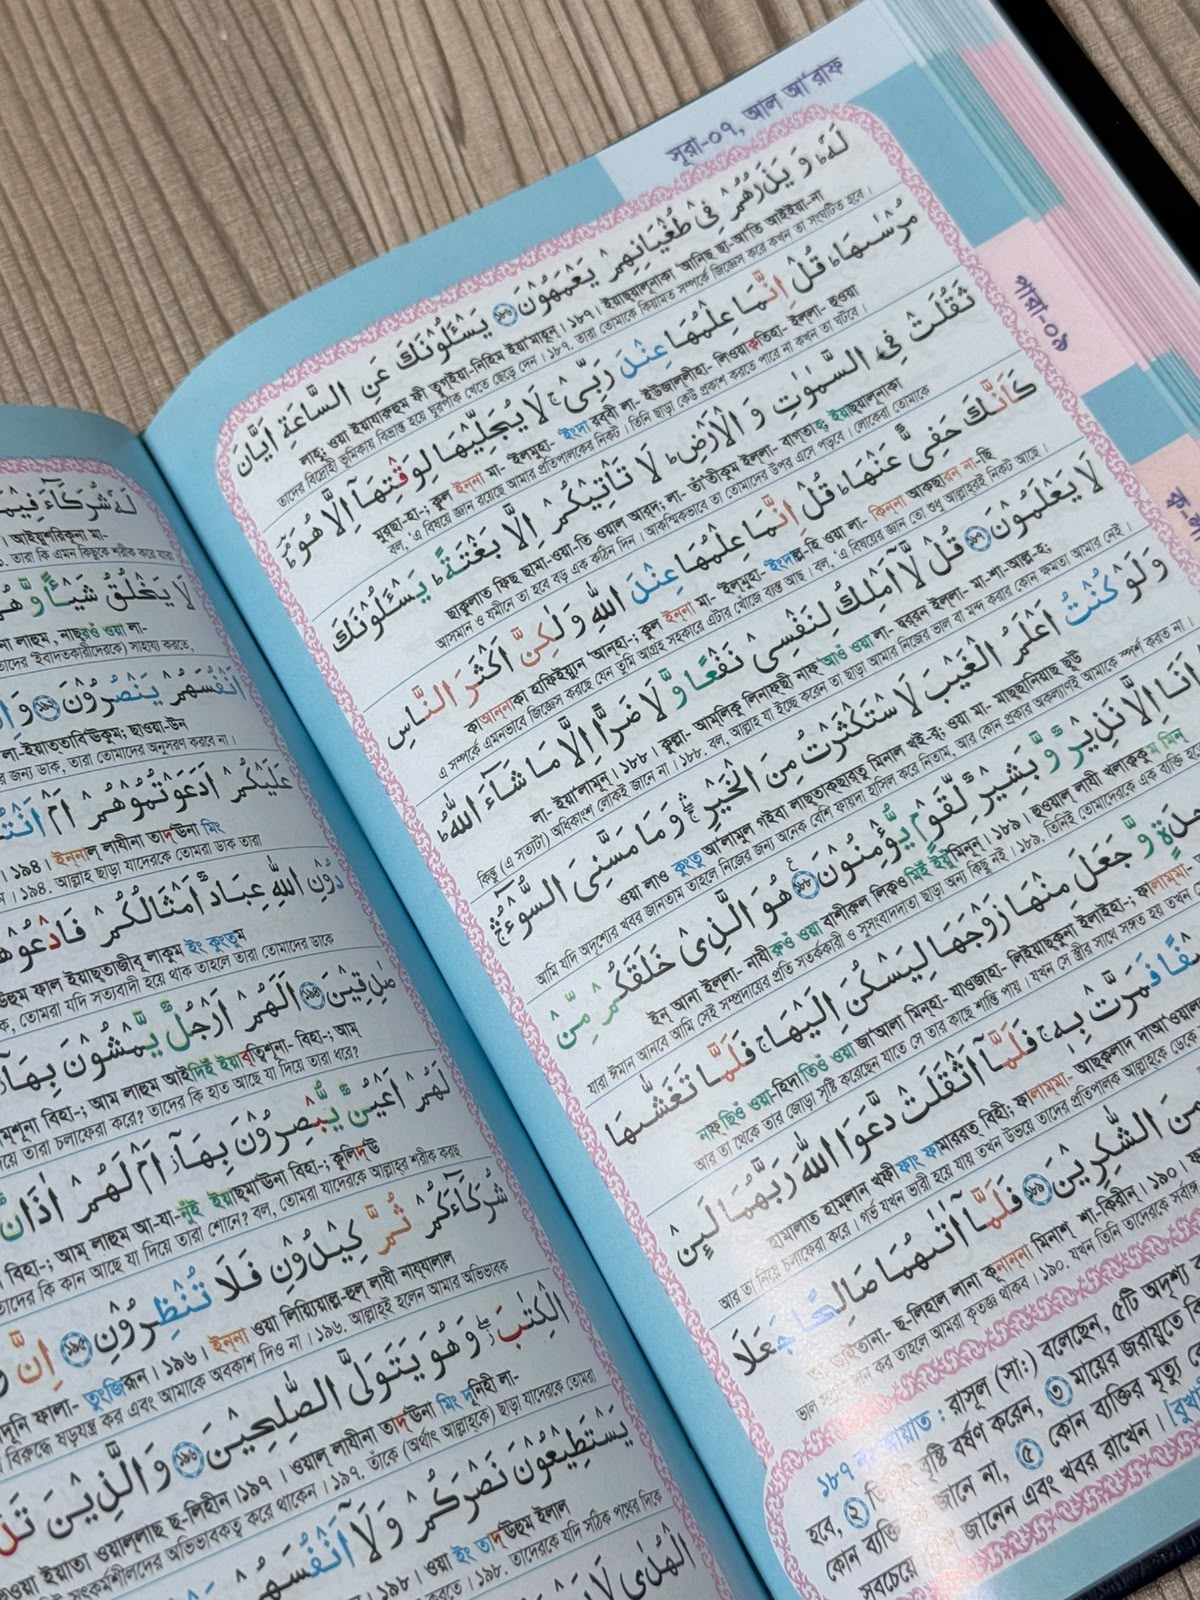 সূরা-০৭, আল আ'রাফ
পারা-০৯
لَهٗ ؕ وَ يَذَرُهُمْ فِيْ طُغْيَانِهِمْ يَعْمَهُوْنَ ﴿١٨٦﴾ يَسْـَٔلُوْنَكَ عَنِ السَّاعَةِ اَيَّانَ
লাহূ; ওয়া ইয়াযারুহুম ফী তুগ্‌ইয়া-নিহিম ইয়া'মাহূন্। ১৮৭। ইয়াছ্য়ালূনাকা 'আনিছ্ ছা-'আতি আইইয়া-না
তাদের বিদ্রোহী ভূমিকায় বিভ্রান্ত হয়ে ঘুরপাক খেতে ছেড়ে দেন। ১৮৭. তারা তোমাকে কিয়ামত সম্পর্কে জিজ্ঞেস করে কখন তা সংঘটিত হবে।
مُرْسٰىهَا ؕ قُلْ اِنَّمَا عِلْمُهَا عِنْدَ رَبِّيْ ۚ لَا يُجَلِّيْهَا لِوَقْتِهَاۤ اِلَّا هُوَ ؔؕ
মুরছা-হা-; কুল ইন্নামা- 'ইলমুহা- 'ইংদা রব্বী লা- ইউজাল্লীহা- লিওয়াক্বতিহা- ইল্লা- হুওয়া
বল, 'এ বিষয়ে জ্ঞান রয়েছে আমার প্রতিপালকের নিকট। তিনি ছাড়া কেউ প্রকাশ করতে পারে না কখন তা ঘটবে।
ثَقُلَتْ فِي السَّمٰوٰتِ وَ الْاَرْضِ ؕ لَا تَاْتِيْكُمْ اِلَّا بَغْتَةً ؕ يَسْـَٔلُوْنَكَ
ছাকুলাত ফিছ্ ছামা-ওয়া-তি ওয়াল আরদ্ব; লা- তা'তীকুম ইল্লা- বাগতাহ্; ইয়াছ্য়ালূনাকা
আসমান ও যমীনে তা হবে বড় এক কঠিন দিন। আকস্মিকভাবে তা তোমাদের উপর এসে পড়বে। লোকেরা তোমাকে
كَاَنَّكَ حَفِيٌّ عَنْهَا ؕ قُلْ اِنَّمَا عِلْمُهَا عِنْدَ اللّٰهِ وَ لٰكِنَّ اَكْثَرَ النَّاسِ
কাআন্নাকা হাফিইয়্যুন 'আন্হা-; কুল ইন্নামা- 'ইলমুহা- 'ইংদাল্ল-হি ওয়া লা- কিন্না আকছারন না-ছি
এ সম্পর্কে এমনভাবে জিজ্ঞেস করছে যেন তুমি আগ্রহ সহকারে এটার খোঁজে ব্যস্ত আছ। বল, 'এ বিষয়ের জ্ঞান তো শুধু আল্লাহ্‌রই নিকট আছে।
لَا يَعْلَمُوْنَ ﴿١٨٧﴾ قُلْ لَّاۤ اَمْلِكُ لِنَفْسِيْ نَفْعًا وَّ لَا ضَرًّا اِلَّا مَا شَآءَ اللّٰهُ ؕ
লা- ইয়া'লামূন্। ১৮৮। কুল্লা- আম্লিকু লিনাফ্‌ছী নাফ্'আওঁ ওয়া লা- দ্বররন ইল্লা- মা-শা-আল্ল-হ্;
কিন্তু (এ সত্যটা) অধিকাংশ লোকই জানে না। ১৮৮. বল, আল্লাহ যা ইচ্ছে করেন তা ছাড়া আমার নিজের ভাল বা মন্দ করার কোন ক্ষমতা আমার নেই।
وَ لَوْ كُنْتُ اَعْلَمُ الْغَيْبَ لَا سْتَكْثَرْتُ مِنَ الْخَيْرِ ۛۚ وَ مَا مَسَّنِيَ السُّوْٓءُ ۛۚ
ওয়া লাও কুংতু আ'লামুল গইবা লাছ্‌তাকছারতু মিনাল খই-র্; ওয়া মা- মাছ্ছানিয়াছ ছূউ
আমি যদি অদৃশ্যের খবর জানতাম তাহলে নিজের জন্য অনেক বেশি ফায়দা হাসিল করে নিতাম, আর কোন প্রকার অকল্যাণই আমাকে স্পর্শ করত না।
اَنَا اِلَّا نَذِيْرٌ وَّ بَشِيْرٌ لِّقَوْمٍ يُّؤْمِنُوْنَ ﴿١٨٨﴾ هُوَ الَّذِيْ خَلَقَكُمْ مِّنْ
ইন্ আনা ইল্লা- নাযীরুওঁ ওয়া বাশীরুল লিকওমিইঁ ইয়ু'মিনূন্। ১৮৯। হুওয়াল্ লাযী খলাককুম মিন্
যারা ঈমান আনবে আমি সেই সম্প্রদায়ের প্রতি সতর্ককারী ও সুসংবাদদাতা ছাড়া অন্য কিছু নই। ১৮৯. তিনিই তোমাদেরকে এক ব্যক্তি
وَّ جَعَلَ مِنْهَا زَوْجَهَا لِيَسْكُنَ اِلَيْهَا ۚ فَلَمَّا تَغَشّٰىهَا
নাফ্‌ছিওঁ ওয়া-হিদাতিওঁ ওয়া জা'আলা মিন্হা- যাওজাহা- লিইয়াছ্‌কুনা ইলাইহা-; ফালাম্মা-
আর তা থেকে তার জোড়া সৃষ্টি করেছেন যাতে সে তার কাছে শান্তি পায়। যখন সে স্ত্রীর সাথে সঙ্গত হয় তখন
فَمَرَّتْ بِهٖ ۚ فَلَمَّاۤ اَثْقَلَتْ دَّعَوَا اللّٰهَ رَبَّهُمَا لَىِٕنْ
হামালাত হাম্লান খফীফাং ফামাররত্ বিহী; ফালাম্মা- আছ্‌ক্বলাদ দা'আওয়াল্
আর তা নিয়ে চলাফেরা করে। গর্ভ যখন ভারী হয়ে যায় তখন উভয়ে তাদের প্রতিপালক আল্লাহ্‌কে ডেকে
الشّٰكِرِيْنَ ﴿١٨٩﴾ فَلَمَّاۤ اٰتٰىهُمَا صَالِحًا جَعَلَا
ছ-লিহাল লানা কূনান্না মিনাশ্ শা-কিরীন্। ১৯০।
কর তাহলে আমরা কৃতজ্ঞ থাকব। ১৯০. যখন তিনি তাদেরকে সর্বাঙ্গ
১৮৭ নং আয়াত : রাসূল (সা:) বলেছেন, ৫টি অদৃশ্য
হবে, ২ বৃষ্টি বর্ষণ করেন, ৩ মায়ের জরায়ুতে
কোন ব্যক্তি জানে না, ৫ কোন ব্যক্তির মৃত্যু
সবচেয়ে জানেন এবং খবর রাখেন।
لَهٗ شُرَكَآءَ فِيْمَا
। আইয়ুশরিকূনা মা-
তারা কি এমন কিছুকে শরীক করে যারা
لَا يَخْلُقُ شَيْـًٔا وَّ
লাহুম্, নাছ্‌রওঁ ওয়া লা-
তাদের ইবাদতকারীদেরকে) সাহায্য করতে,
اَنْفُسَهُمْ يَنْصُرُوْنَ ﴿١٩٢﴾
লা-ইয়াত্তাবি'উকুম; ছাওয়া-উন
জন্য ডাক, তারা তোমাদের অনুসরণ করবে না।
عَلَيْكُمْ اَدَعَوْتُمُوْهُمْ اَمْ اَنْتُمْ
। ১৯৪। ইন্নাল্ লাযীনা তাদ্‌'উনা মিং
১৯৪. আল্লাহ ছাড়া যাদেরকে তোমরা ডাক তারা
دُوْنِ اللّٰهِ عِبَادٌ اَمْثَالُكُمْ فَادْعُوْهُمْ
ফাল ইয়াছ্‌তাজীবূ লাকুম ইং কুংতুম
তোমরা যদি সত্যবাদী হয়ে থাক তাহলে তারা তোমাদের ডাকে
صٰدِقِيْنَ ﴿١٩٤﴾ اَلَهُمْ اَرْجُلٌ يَّمْشُوْنَ بِهَاۤ
বিহা-; আম লাহুম আইদিইঁ ইয়াবতিশূনা- বিহা-; আম্
তারা চলাফেরা করে? তাদের কি হাত আছে যা দিয়ে তারা ধরে?
لَهُمْ اَعْيُنٌ يُّبْصِرُوْنَ بِهَاۤ ۫ اَمْ لَهُمْ اٰذَانٌ
বিহা-; আম্ লাহুম আ-যা-নুইঁ ইয়াছ্‌মা'উনা বিহা-; কুলিদ্‌'উ
তাদের কি কান আছে যা দিয়ে তারা শোনে? বল, তোমরা যাদেরকে আল্লাহ্‌র শরীক করছ
شُرَكَآءَكُمْ ثُمَّ كِيْدُوْنِ فَلَا تُنْظِرُوْنِ ﴿١٩٥﴾ اِنَّ
ফালা- তুংজিরূন। ১৯৬। ইন্না ওয়া লিয়্যিয়াল্ল-হুল্ লাযী নায্যালাল
বিরুদ্ধে ষড়যন্ত্র কর এবং আমাকে অবকাশ দিও না। ১৯৬. আল্লাহ্‌ই হলেন আমার অভিভাবক
الْكِتٰبَ ۖۗ وَ هُوَ يَتَوَلَّى الصّٰلِحِيْنَ ﴿١٩٦﴾ وَ الَّذِيْنَ
ইয়াতা ওয়াল্লাছ্ ছ-লিহীন। ১৯৭। ওয়াল্ লাযীনা তাদ্‌'উনা মিং দূনিহী লা-
সৎকর্মশীলদের অভিভাবকত্ব করে থাকেন। ১৯৭. তাঁকে (অর্থাৎ আল্লাহ্‌কে) ছাড়া যাদেরকে তোমরা
يَسْتَطِيْعُوْنَ نَصْرَكُمْ وَ لَاۤ اَنْفُسَهُمْ
। ১৯৮। ওয়া ইং তাদ্‌'উহুম ইলাল
করতে। ১৯৮. তাদেরকে যদি সঠিক পথের দিকে
الْهُدٰى لَا